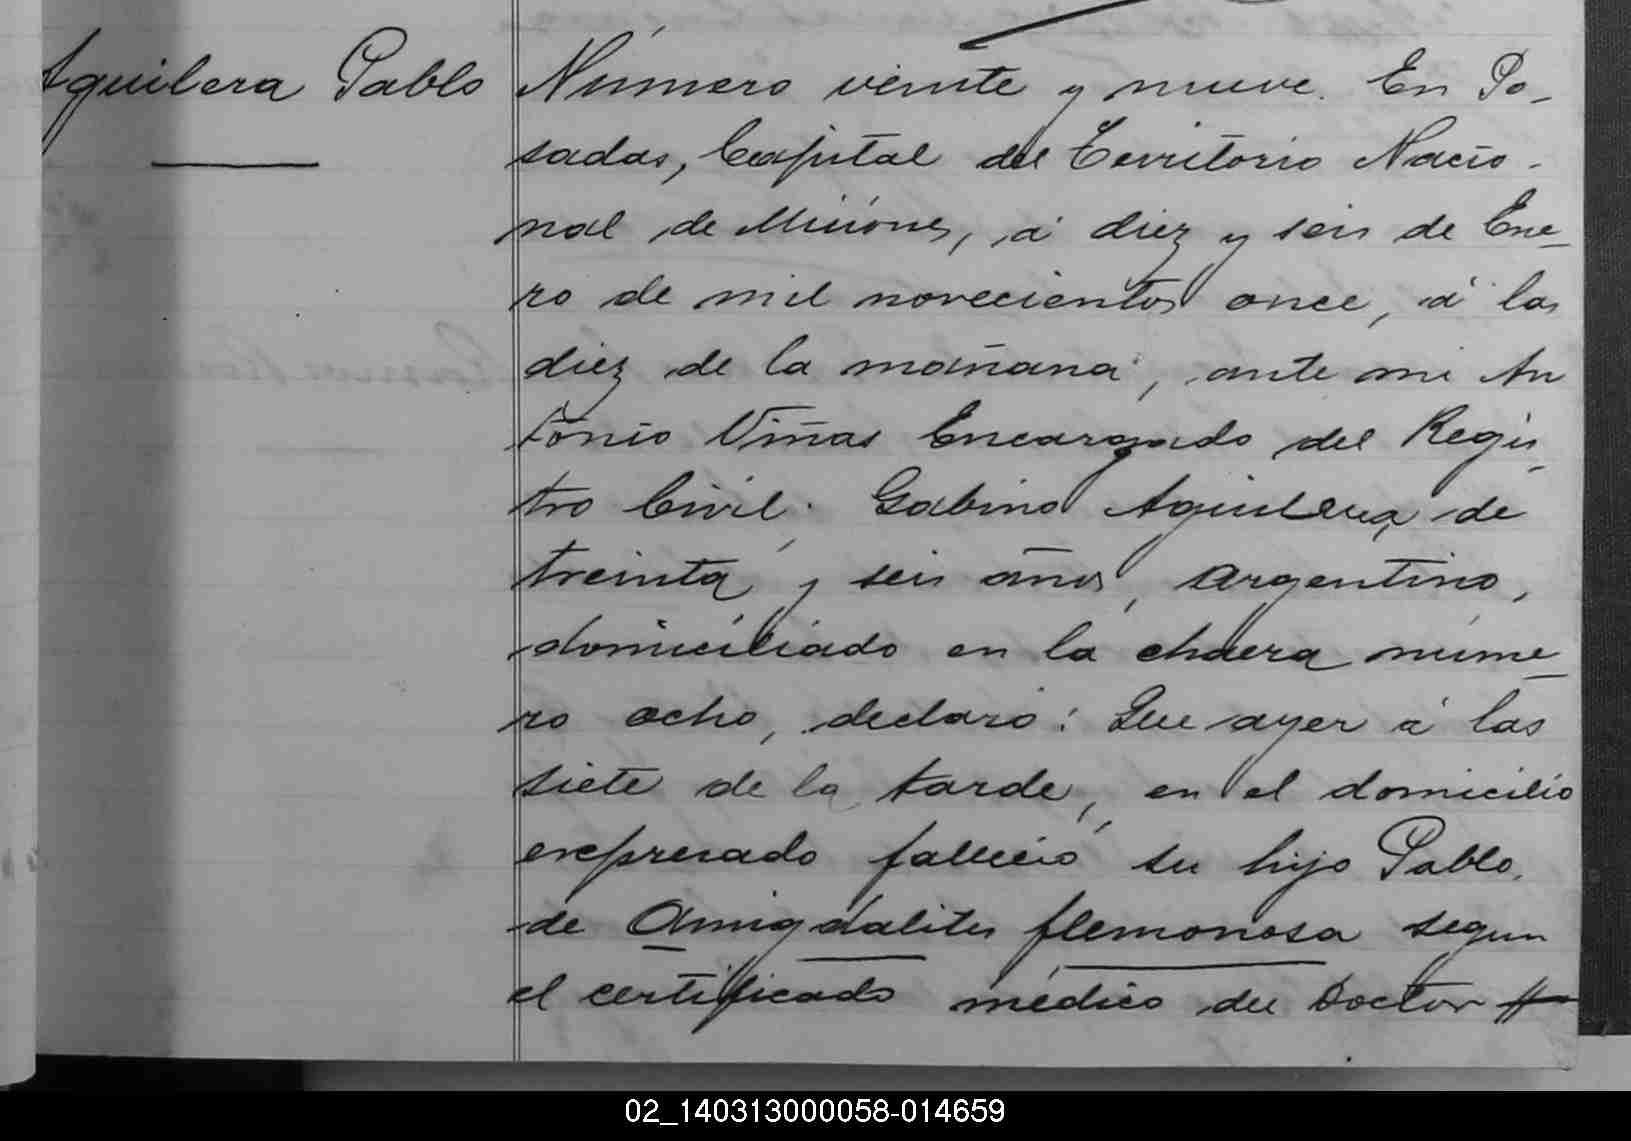 Aguilera Pablo
Número veinte y nueve. En Po-
sadas, Capital del Territorio Nacio-
nal de Misiones, á diez y seis de Ene-
ro de mil novecientos once, á las
diez de la mañana, ante mi An
tonio Viñas Encargado del Regis-
tro Civil; Gabino Aguilera, de
treinta y seis años, argentino,
domiciliado en la chacra núme-
ro ocho, declaró: Que ayer á las
siete de la tarde, en el domicilio
expresado falleció su hijo Pablo,
de Amigdalitis flemonosa segun
el certificado médico del Doctor
02_140313000058-014659